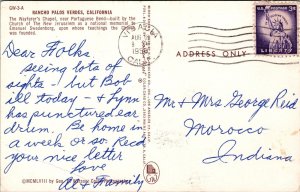 GV-3-A
RANCHO PALOS VERDES, CALIFORNIA
The Wayfarer's Chapel, near Portuguese Bend—built by the
Church of The New Jerusalem as a national memorial to
Emanuel Swedenborg, upon whose teachings the Church
was founded.
Dear Folks
Seeing lots of
sights - but Bob
ill today - & Lynn
has punctured ear
drum. Be home in
a week or so. Recd
your nice letter
Love
Al & Family
3¢
LIBERTY
ADDRESS ONLY
Mr & Mrs George Reid
Morocco
Indiana